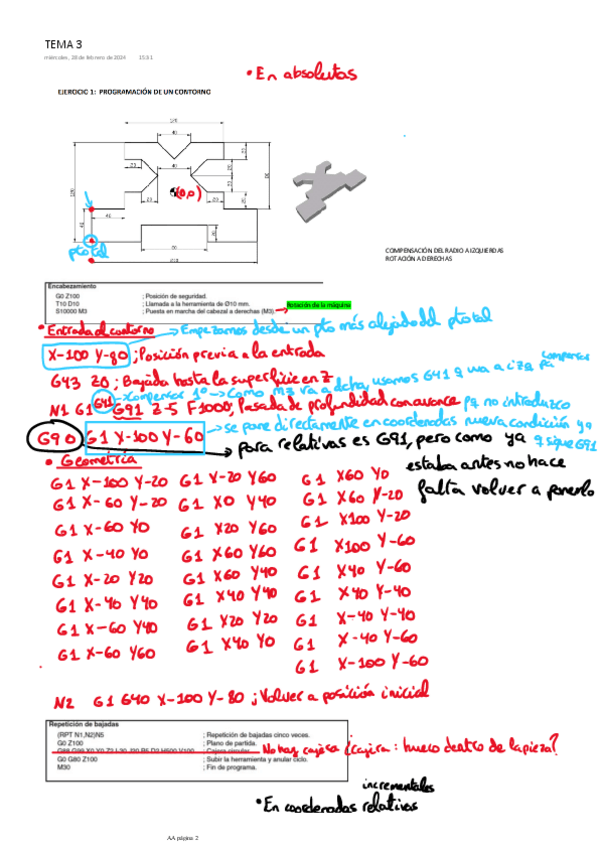 TEMA 3
miércoles, 28 de febrero de 2024 15:51
• En absolutas
EJERCICIO 1: PROGRAMACIÓN DE UN CONTORNO
40
40
20
20
20
20
(0,0)
40
40
20
80
pto tal
COMPENSACIÓN DEL RADIO A IZQUIERDAS
ROTACIÓN A DERECHAS
Encabezamiento
G0 Z100 ; Posición de seguridad.
T10 D10 ; Llamada a la herramienta de Ø10 mm.
S10000 M3 ; Puesta en marcha del cabezal a derechas (M3). → Rotación de la máquina
• Entrada al contorno → Empezamos desde un pto más alejado del pto tal
X-100 Y-80 ; Posición previa a la entrada
G43 Z0 ; Bajada hasta la superficie en Z
G41 → compensar 1º → como M3 va a dcha, usamos G41 q va a izq pa compensar
N1 G1 G91 Z-5 F1000; Pasada de profundidad con avance pq no introduzco nueva condición ya q sigue G91
G90 G1 X-100 Y-60 → se pone directamente en coordenadas
→ para relativas es G91, pero como ya estaba antes no hace falta volver a ponerlo
• Geometría
G1 X-100 Y-20 G1 X-20 Y60 G1 X60 Y0
G1 X-60 Y-20 G1 X0 Y40 G1 X60 Y-20
G1 X-60 Y0 G1 X20 Y60 G1 X100 Y-20
G1 X-40 Y0 G1 X60 Y60 G1 X100 Y-60
G1 X-20 Y20 G1 X60 Y40 G1 X40 Y-60
G1 X-40 Y40 G1 X40 Y40 G1 X40 Y-40
G1 X-60 Y40 G1 X20 Y20 G1 X-40 Y-40
G1 X-60 Y60 G1 X40 Y0 G1 X-40 Y-60
G1 X-100 Y-60
N2 G1 G40 X-100 Y-80 ; Volver a posición inicial
Repetición de bajadas
(RPT N1,N2)N5 ; Repetición de bajadas cinco veces.
G0 Z100 ; Plano de partida.
G88 G99 X0 Y0 Z2 ; Cajera circular. No hay cajera ¿cajera: hueco dentro de la pieza?
G0 G80 Z100 ; Subir la herramienta y anular ciclo.
M30 ; Fin de programa.
incrementales
• En coordenadas relativas
AA página 2